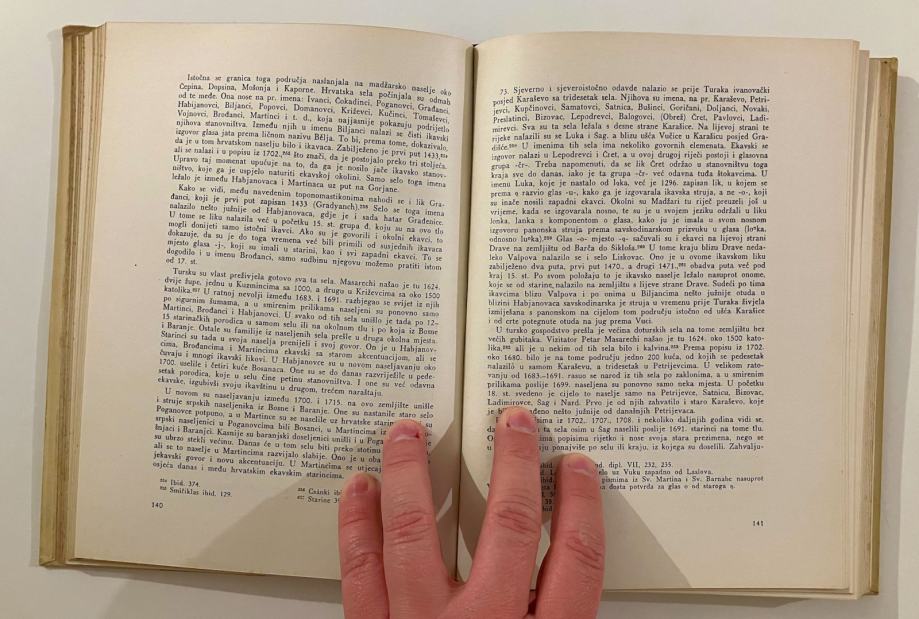 Istočna se granica toga područja naslanjala na madžarsko naselje oko
Čepina, Dopsina, Mošonja i Kaporne. Hrvatska sela počinjala su odmah
od te međe. Ona nose na pr. imena: Ivanci, Čokadinci, Poganovci, Građanci,
Habijanovci, Biljanci, Popovci, Domanovci, Križevci, Kučinci, Tomaševci,
Vojnovci, Brođanci, Martinci i t. d., koja najjasnije pokazuju podrijetlo
njihova stanovništva. Između njih u imenu Biljanci nalazi se čisti ikavski
izgovor glasa jata prema ličnom nazivu Běl'a. To bi, prema tome, dokazivalo,
da je u tom hrvatskom naselju bilo i ikavaca. Zabilježeno je prvi put 1433,
ali se nalazi i u popisu iz 1702, što znači, da je postojalo preko tri stoljeća.
Upravo taj momenat upućuje na to, da ga je nosilo jače ikavsko stanov-
ništvo, koje ga je uspjelo naturiti ekavskoj okolini. Samo selo toga imena
ležalo je između Habjanovaca i Martinaca uz put na Gorjane.
Kako se vidi, među navedenim toponomastikonima nahodi se i lik Gra-
đanci, koji je prvi put zapisan 1433 (Gradyanch). Selo se toga imena
nalazilo nešto južnije od Habjanovaca, gdje je i sada hatar Građenice.
U tome se liku nalazila već u početku 15. st. grupa d, koju su na ovo tlo
mogli donijeti samo istočni ikavci. Ako su je govorili i okolni ekavci, to
dokazuje, da su je do toga vremena već bili primili od susjednih ikavaca
mjesto glasa -j-, koji su imali u starini, kao i svi zapadni ekavci. To se
dogodilo i u imenu Brođanci, samo sudbinu njegovu možemo pratiti istom
od 17. st.
Tursku su vlast preživjela gotovo sva ta sela. Masarechi našao je tu 1624.
dvije župe, jednu u Kuzmincima sa 1000, a drugu u Križevcima sa oko 1500
katolika. U ratnoj nevolji između 1683. i 1691. razbjegao se svijet iz njih
po sigurnim šumama, a u smirenim prilikama naseljeni su ponovno samo
Martinci, Brođanci i Habjanovci. U svako od tih sela unišlo je tada po 12–
15 starinačkih porodica u samom selu ili na okolnom tlu i po koja iz Bosne
i Baranje. Ostale su familije iz naseljenih sela prešle u druga okolna mjesta.
Starinci su tada u svoja naselja prenijeli i svoj govor. On je u Habjanov-
cima, Brođancima i Martincima ekavski sa starom akcentuacijom, ali se
čuvaju i mnogi ikavski likovi. U Habjanovce su u novom naseljavanju oko
1700. uselile i četiri kuće Bosanaca. One su se do danas razvriježile u pede-
setak porodica, koje u selu čine petinu stanovništva. I one su već odavna
ekavske, izgubivši svoju ikavštinu u drugom, trećem naraštaju.
U novom su naseljavanju između 1700. i 1715. na ovo zemljište unišle
i struje srpskih naseljenika iz Bosne i Baranje. One su nastanile staro selo
Poganovce potpuno, a u Martince su se naselile uz hrvatske
srpski naseljenici u Poganovcima bili Bosanci, u Martincima
Injaci i Baranjci. Kasnije su baranjski doseljenici unišli i u
su ubrzo stekli većinu. Danas će u tom selu biti preko
ali se to naselje u Martincima razvijalo slabije. Ono je u
jekavski govor i novu akcentuaciju. U Martincima se
osjeća danas i među hrvatskim ekavskim starincima.
Ibid. 374.
Smičiklas ibid. 129.
Csánki
Starine
140
73. Sjeverno i sjeveroistočno odavde nalazio se prije Turaka ivanovački
posjed Karaševo sa tridesetak sela. Njihova su imena, na pr. Karaševo, Petri-
jevci, Kupčinovci, Samatovci, Satnica, Bušinci, Goričani, Doljanci, Novaki,
Preslatinci, Bizovac, Lepedrovci, Balogovci, (Obrež) Čret, Pavlovci, Ladi-
mirevci. Sva su ta sela ležala s desne strane Karašice. Na lijevoj strani te
rijeke nalazili su se Luka i Šag, a blizu ušća Vučice u Karašicu posjed Gra-
dišće. U imenima tih sela ima nekoliko govornih elemenata. Ekavski se
izgovor nalazi u Lepedrovci i Čret, a u ovoj drugoj riječi postoji i glasovna
grupa -čr-. Treba napomenuti, da se lik Čret održao u stanovništvu toga
kraja sve do danas, iako je ta grupa -čr- već odavna tuđa štokavcima. U
imenu Luka, koje je nastalo od loka, već je 1296. zapisan lik, u kojem se
prema ǫ razvio glas -u-, kako ga je izgovarala ikavska struja, a ne -o-, koji
su inače nosili zapadni ekavci. Okolni su Madžari tu riječ preuzeli još u
vrijeme, kada se izgovarala nosno, te su je u svojem jeziku održali u liku
lonka, lanka s komponentom o glasa, kako ju je imala u svom nosnom
izgovoru panonska struja prema savskodinarskom prizvuku u glasa (loⁿka,
odnosno luⁿka). Glas -o- mjesto -ǫ- sačuvali su i ekavci na lijevoj strani
Drave na zemljištu od Barča do Šikloša. U tome kraju blizu Drave neda-
leko Valpova nalazilo se i selo Liskovac. Ono je u ovome ikavskom liku
zabilježeno dva puta, prvi put 1470., a drugi 1471., obadva puta već pod
kraj 15. st. Po svom položaju to je ikavsko naselje ležalo nasuprot onome,
koje se od starine nalazilo na zemljištu s lijeve strane Drave. Sudeći po tima
ikavcima blizu Valpova i po onima u Biljancima nešto južnije otuda u
blizini Habjanovaca savskodinarska je struja u vremenu prije Turaka živjela
izmiješana s panonskom na cijelom tom području istočno od ušća Karašice
i od crte potegnute otuda na jug prema Vuci.
U tursko gospodstvo prešla je većina doturskih sela na tome zemljištu bez
većih gubitaka. Vizitator Petar Masarechi našao je tu 1624. oko 1500 kato-
lika, ali je u nekim od tih sela bilo i kalvina. Prema popisu iz 1702.
oko 1680. bilo je na tome području jedno 200 kuća, od kojih se pedesetak
nalazilo u samom Karaševu, a tridesetak u Petrijevcima. U velikom rato-
vanju od 1683–1691. rasuo se narod iz tih sela po zaklonima, a u smirenim
prilikama poslije 1699. naseljena su ponovno samo neka mjesta. U početku
18. st. svedeno je cijelo to naselje samo na Petrijevce, Satnicu, Bizovac,
Ladimirovce, Šag i Nard. Prvo je od njih zahvatilo i staro Karaševo, koje
je nešto južnije od današnjih Petrijevaca.
iz 1702., 1707., 1708. i nekoliko daljnjih godina vidi se,
i ta sela osim u Šag naselili poslije 1691. starinci na tome tlu.
popisima rijetko i nose svoja stara prezimena, nego se
ponajviše po selu ili kraju, iz kojega su doselili. Zahvalju-
dipl. VII, 232, 235.
uz Vuku zapadno od Laslova.
pismima iz Sv. Martina i Sv. Barnabe nasuprot
dosta potvrda za glas o od staroga ǫ.
141